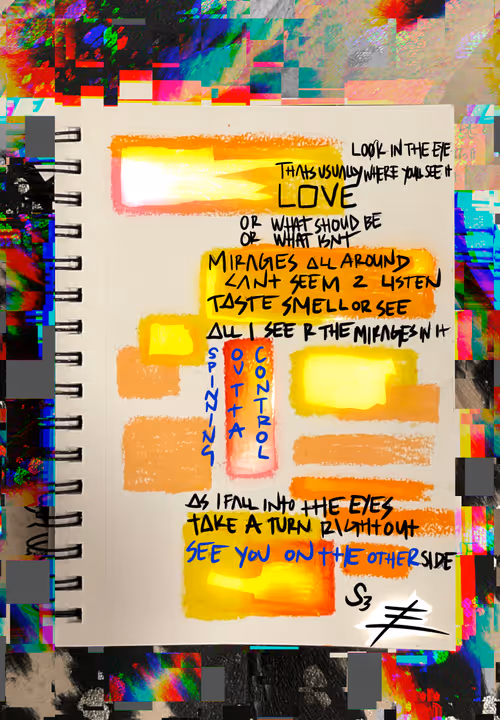 LOOK IN THE EYE
THATS USUALLY WHERE YOULL SEE IT
LOVE
OR WHAT SHOULD BE
OR WHAT ISNT
MIRAGES ALL AROUND
CANT SEEM 2 LISTEN
TASTE SMELL OR SEE
ALL I SEE R THE MIRAGES IN IT
SPINNING
OUTTA
CONTROL
AS I FALL INTO THE EYES
TAKE A TURN RIGHT OUT
SEE YOU ON THE OTHER SIDE
S3